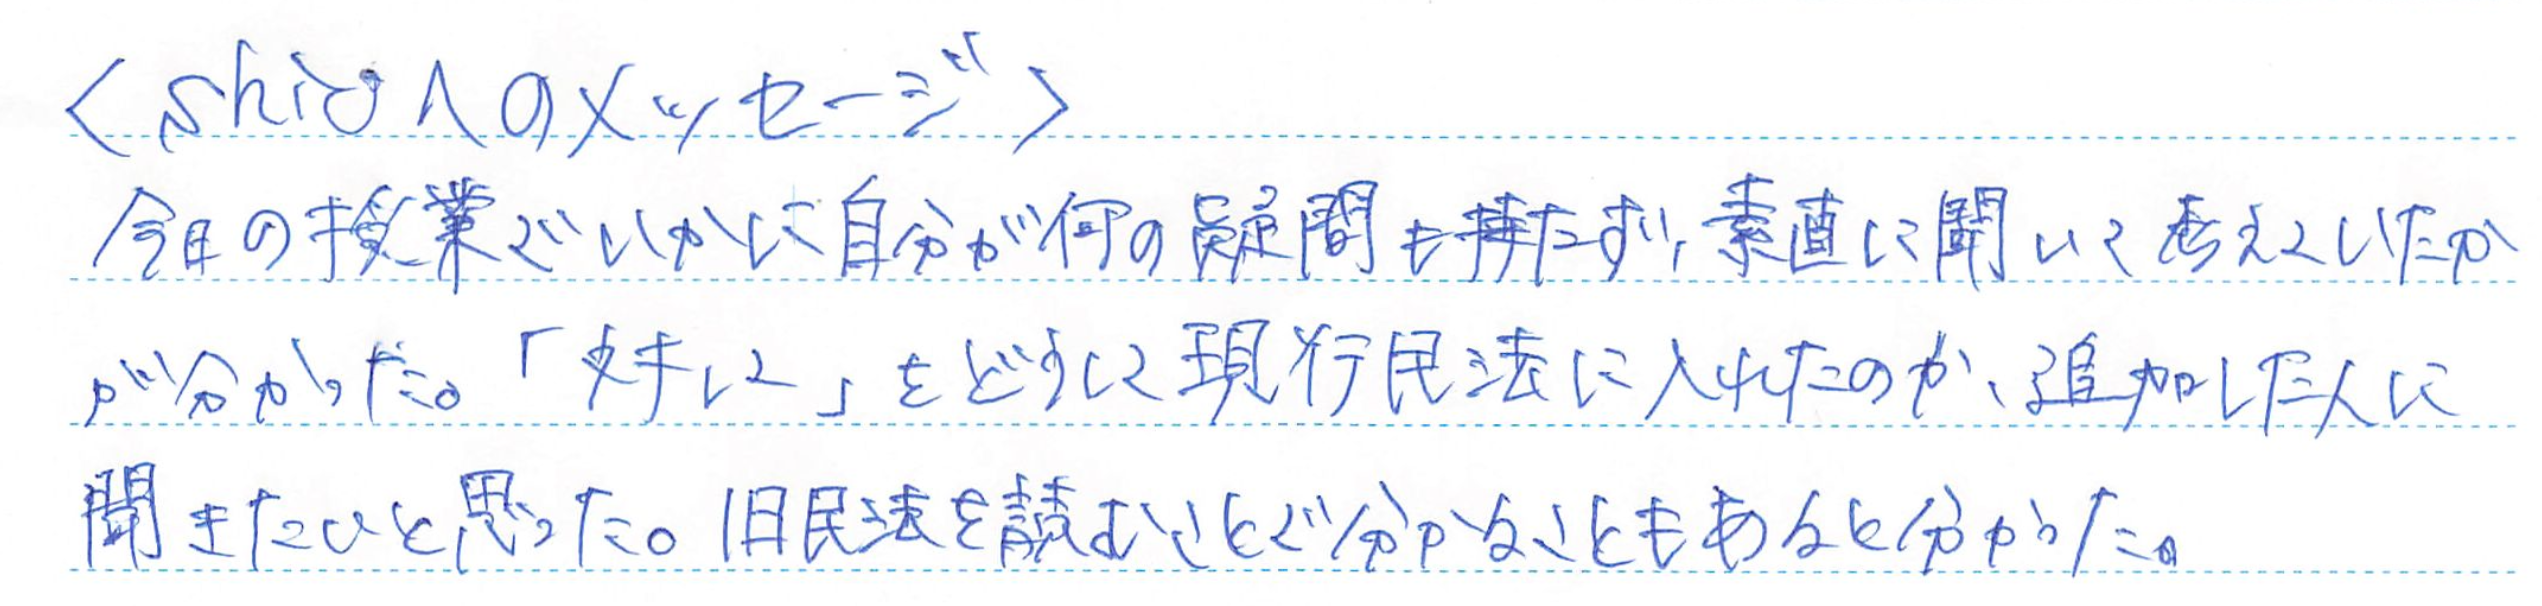 <shioへのメッセージ>
今日の授業でいかに自分が何の疑問も持たず、素直に聞いて考えていたか
が分かった。「対して」をどうして現行民法に入れたのか、追加した人に
聞きたいと思った。旧民法を読むことで分かることもあると分かった。